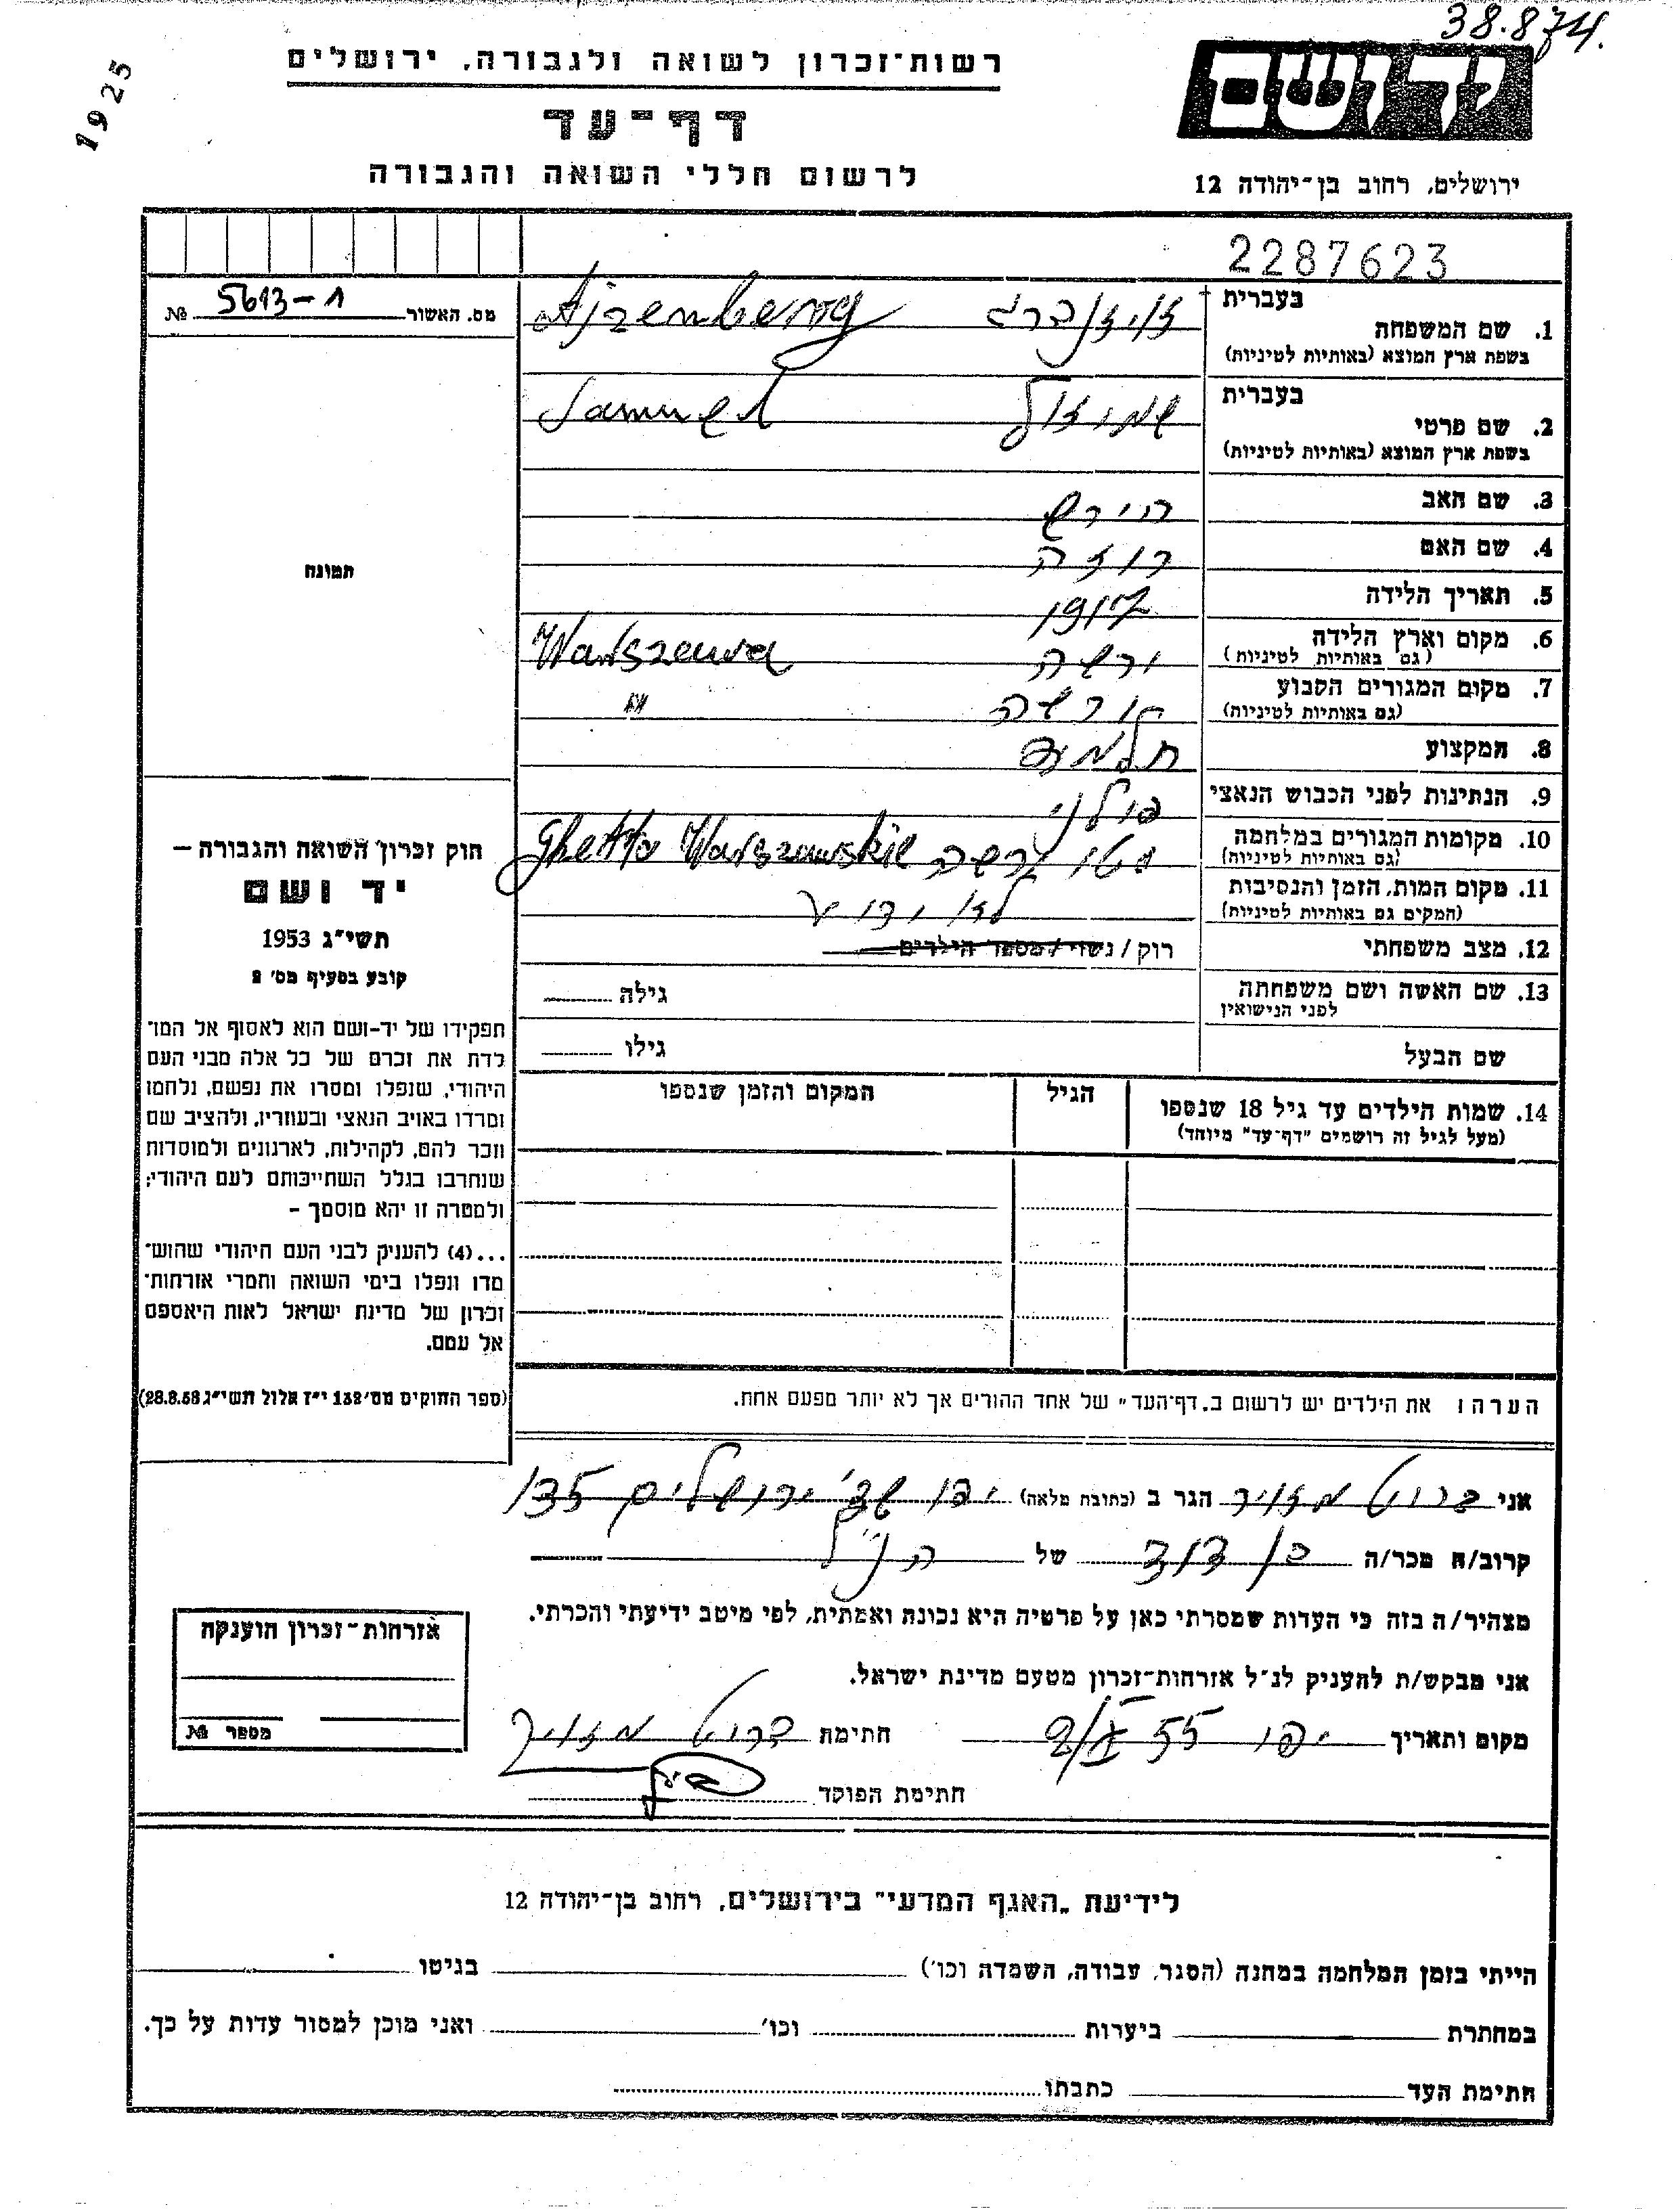 38.874.
1925
רשות־זכרון לשואה ולגבורה, ירושלים
דף־עד
לרשום חללי השואה והגבורה
יד ושם
ירושלים, רחוב בן־יהודה 12
2287623
מס. האשור 5613-1 №
תמונה
בעברית
1. שם המשפחה אייזנברג Ajzenberg
בשפת ארץ המוצא (באותיות לטיניות)
בעברית
2. שם פרטי שמואל Samuel
בשפת ארץ המוצא (באותיות לטיניות)
3. שם האב הירש
4. שם האם רוזה
5. תאריך הלידה
6. מקום וארץ הלידה ורשה Warszawa
(גם באותיות לטיניות)
7. מקום המגורים הקבוע ורשה "
(גם באותיות לטיניות)
8. המקצוע
9. הנתינות לפני הכבוש הנאצי פולני
10. מקומות המגורים במלחמה גטו ורשה Ghetto Warszawskie
(גם באותיות לטיניות)
11. מקום המות, הזמן והנסיבות לא ידוע
(המקום גם באותיות לטיניות)
12. מצב משפחתי רוק / נשוי / מספר הילדים
13. שם האשה ושם משפחתה גילה
לפני הנישואין
שם הבעל גילו
14. שמות הילדים עד גיל 18 שנספו הגיל המקום והזמן שנספו
(מעל לגיל זה רושמים "דף־עד" מיוחד)
חוק זכרון השואה והגבורה –
יד ושם
תשי"ג 1953
קובע בסעיף מס' 2
תפקידו של יד־ושם הוא לאסוף אל המו־
לדת את זכרם של כל אלה מבני העם
היהודי, שנפלו ומסרו את נפשם, נלחמו
ומרדו באויב הנאצי ובעוזריו, ולהציב שם
וזכר להם, לקהילות, לארגונים ולמוסדות
שנחרבו בגלל השתייכותם לעם היהודי;
ולמטרה זו יהא מוסמך –
...(4) להעניק לבני העם היהודי שהוש־
מדו ונפלו בימי השואה והמרי אזרחות־
זכרון של מדינת ישראל לאות היאספם
אל עמם.
(ספר החוקים מס' 132 י"ז אלול תשי"ג 28.8.53)
הערה: את הילדים יש לרשום ב„דף־העד" של אחד ההורים אך לא יותר מפעם אחת.
אני ברוט מאיר הגר ב (כתובת מלאה) יפו שד' ירושלים 135
קרוב/ה מכר/ה בן דוד של הנ"ל
מצהיר/ה בזה כי העדות שמסרתי כאן על פרטיה היא נכונה ואמתית, לפי מיטב ידיעתי והכרתי.
אני מבקש/ת להעניק לנ"ל אזרחות־זכרון מטעם מדינת ישראל.
מקום ותאריך יפו חתימת ברוט מאיר
חתימת הפוקד
אזרחות־זכרון הוענקה
מספר №
לידיעת „האגף המדעי" בירושלים, רחוב בן־יהודה 12
הייתי בזמן המלחמה במחנה (הסגר, עבודה, השמדה וכו') בגיטו
במחתרת ביערות וכו' ואני מוכן למסור עדות על כך.
חתימת העד כתבתו